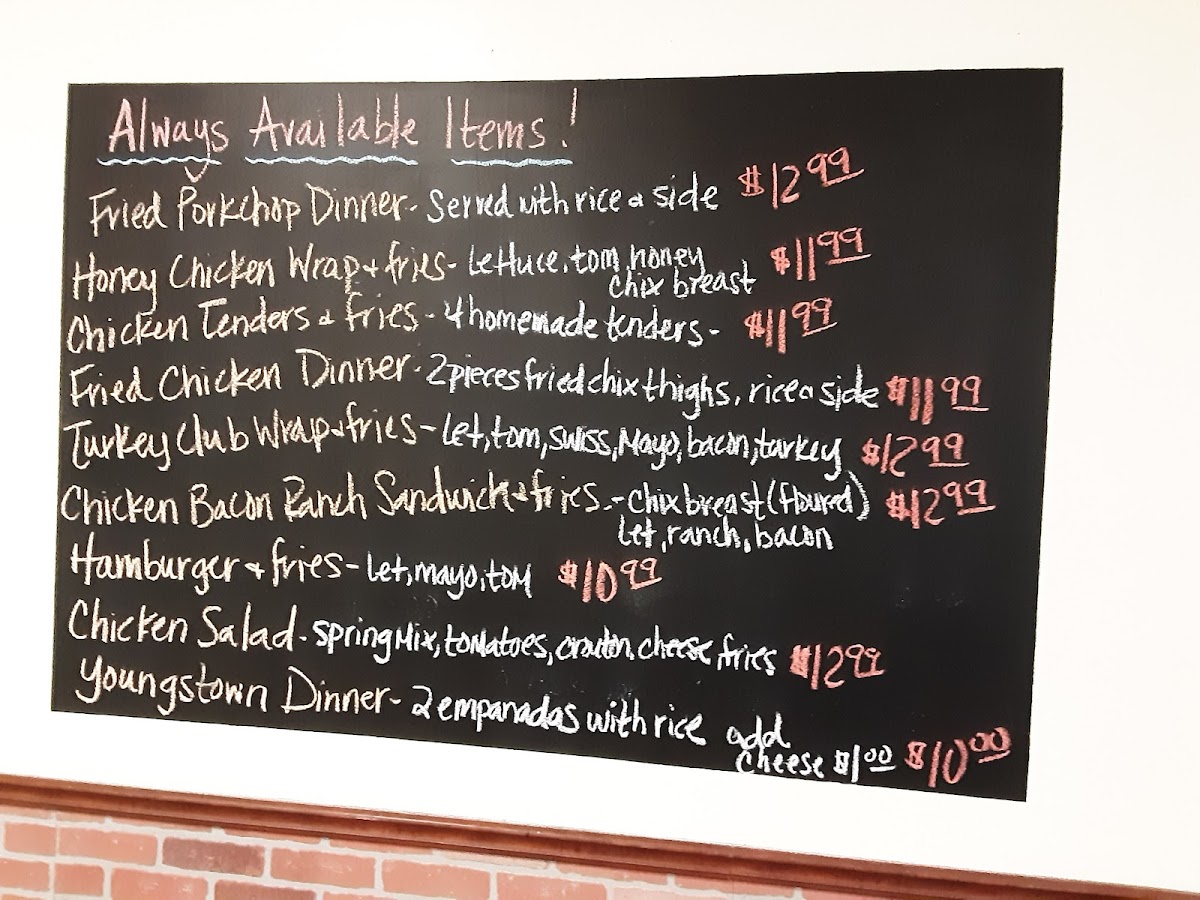 Always Available Items!
Fried Porkchop Dinner - Served with rice & side $12.99
Honey Chicken Wrap & fries - Lettuce, tom, honey $11.99
chix breast
Chicken Tenders & fries - 4 homemade tenders - $11.99
Fried Chicken Dinner - 2 pieces fried chix thighs, rice & side $11.99
Turkey Club Wrap & fries - Let, tom, swiss, Mayo, bacon, turkey $12.99
Chicken Bacon Ranch Sandwich & fries. - chix breast (floured) $12.99
let, ranch, bacon
Hamburger & fries - let, mayo, tom $10.99
Chicken Salad - spring Mix, tomatoes, crouton, cheese, fries $12.99
Youngstown Dinner - 2 empanadas with rice add
cheese $1.00 $10.00